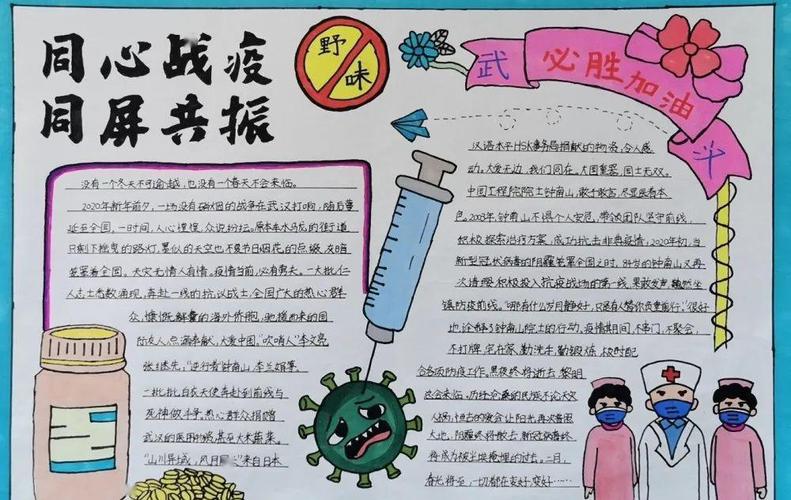 同心战疫
同屏共振
野
味
武
必胜加油
汉
没有一个冬天不可逾越,也没有一个春天不会来临。
2020年新年前夕,一场没有硝烟的战争在武汉打响,随后蔓
延至全国,一时间,人心惶惶,众说纷坛。原本车水马龙的街道
只剩下摇曳的路灯,累似的天空也不复节日烟花的点缀,灰暗
笼罩着全国。天灾无情人有情。疫情当前,必有勇夫。一大批仁
人志士悉数涌现,再赴一线的抗议战士,全国广大的热心群
众,慷慨解囊的海外侨胞,驰援而来的国
际友人,点滴奉献,大爱中国。"吹哨人"李文亮
张继先,"逆行者"钟南山,李兰娟等
一批批白衣天使奔赴到前线与
死神做斗争,热心群众捐赠
武汉的医用物资甚至大米蔬菜。
"山川异域,风月 "来自日本
汉语水平HSK事务局捐献的物资,令人感
动。大爱无边,我们同在。大国重器,国士无双。
中国工程院院士钟南山,敢于敢言,尽显医者本
色。2003年,钟南山不惧个人安危,带领团队坚守前线,
积极探索治疗方案,成功抗击非典疫情,2020年初,当
新型冠状病毒的阴霾笼罩全国之时,84岁的钟南山又再
次请缨,积极投入抗疫战场的第一线,果敢发声,巍然坐
镇防疫前线。"哪有什么岁月静好,只是有人替你负重前行"很好
也诠释了钟南山院士的行动。疫情其间,不串门,不聚会,
不打牌,宅在家,勤洗手,勤锻炼,极时配
合各项防疫工作。黑夜终将逝去,黎明
总会来临。历经沧桑的民族不论天灾
人祸,恒古的爱会让阳光再次普照
大地,阴霾终将散去,新冠病毒终
将成为被尘埃掩埋的过去。二月,
春光将至,一切都在变好,变好……